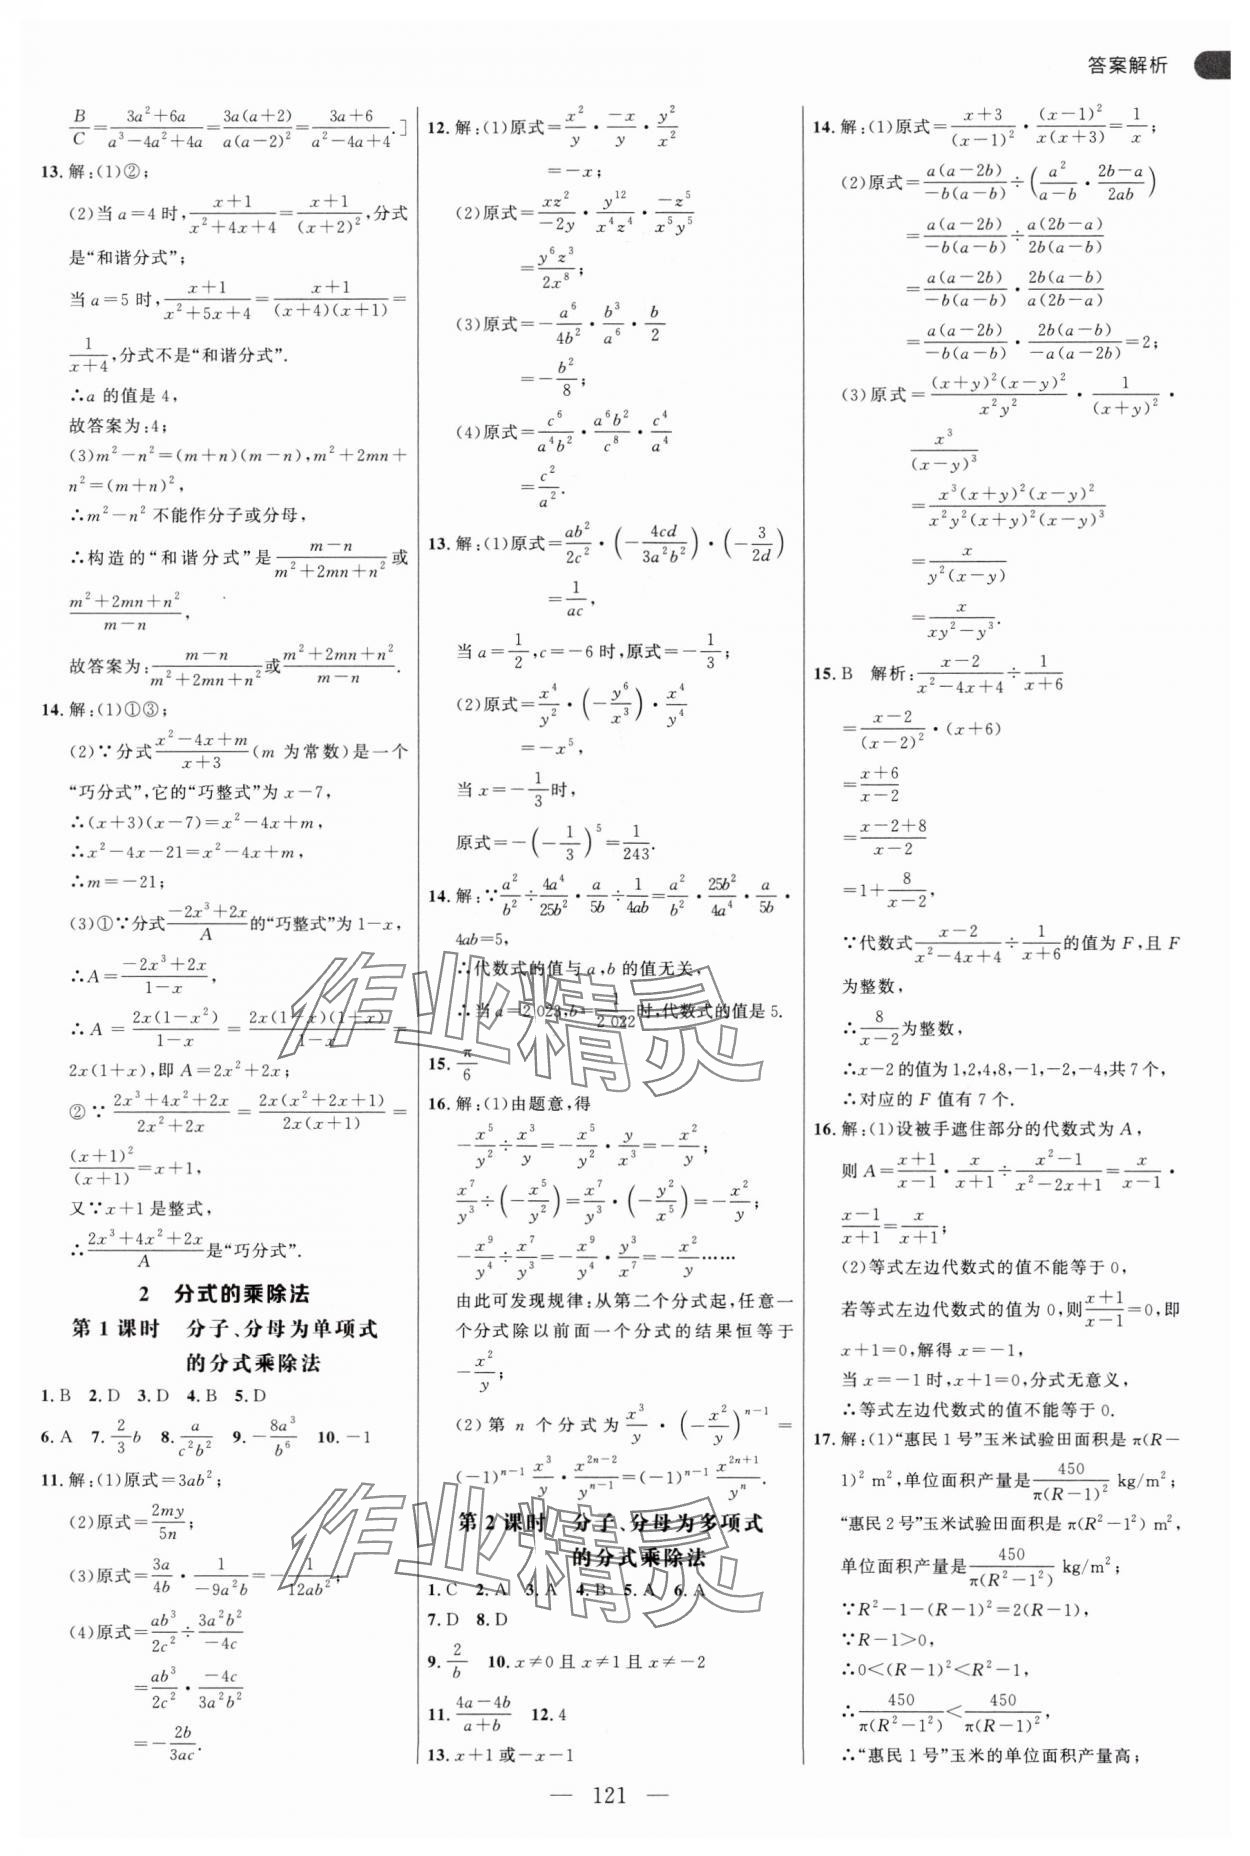 答案解析
B/C=(3a²+6a)/(a³-4a²+4a)=3a(a+2)/a(a-2)²=(3a+6)/(a²-4a+4).]
13.解:(1)②;
(2)当a=4时,(x+1)/(x²+4x+4)=(x+1)/(x+2)²,分式
是“和谐分式”;
当a=5时,(x+1)/(x²+5x+4)=(x+1)/(x+4)(x+1)=
1/(x+4),分式不是“和谐分式”.
∴a的值是4,
故答案为:4;
(3)m²-n²=(m+n)(m-n),m²+2mn+
n²=(m+n)²,
∴m²-n²不能作分子或分母,
∴构造的“和谐分式”是(m-n)/(m²+2mn+n²)或
(m²+2mn+n²)/(m-n),
故答案为:(m-n)/(m²+2mn+n²)或(m²+2mn+n²)/(m-n).
14.解:(1)①③;
(2)∵分式(x²-4x+m)/(x+3)(m为常数)是一个
“巧分式”,它的“巧整式”为x-7,
∴(x+3)(x-7)=x²-4x+m,
∴x²-4x-21=x²-4x+m,
∴m=-21;
(3)①∵分式(-2x³+2x)/A的“巧整式”为1-x,
∴A=(-2x³+2x)/(1-x),
∴A=2x(1-x²)/(1-x)=2x(1+x)(1-x)/(1-x)=
2x(1+x),即A=2x²+2x;
②∵(2x³+4x²+2x)/(2x²+2x)=2x(x²+2x+1)/2x(x+1)=
(x+1)²/(x+1)=x+1,
又∵x+1是整式,
∴(2x³+4x²+2x)/A是“巧分式”.
2 分式的乘除法
第1课时 分子、分母为单项式
的分式乘除法
1.B 2.D 3.D 4.B 5.D
6.A 7.2/3 b 8.a/(c²b²) 9.-8a³/b⁶ 10.-1
11.解:(1)原式=3ab²;
(2)原式=2my/5n;
(3)原式=3a/4b·1/(-9a²b)=-1/(12ab²);
(4)原式=ab³/2c²÷3a²b²/(-4c)
=ab³/2c²·(-4c)/(3a²b²)
=-2b/3ac.
12.解:(1)原式=x²/y·(-x)/y·y²/x²
=-x;
(2)原式=xz²/(-2y)·y¹²/(x⁴z⁴)·(-z⁵)/(x⁵y⁵)
=y⁶z³/2x⁸;
(3)原式=-a⁶/4b²·b³/a⁶·b/2
=-b²/8;
(4)原式=c⁶/(a⁴b²)·a⁶b²/c⁸·c⁴/a⁴
=c²/a².
13.解:(1)原式=ab²/2c²·(-4cd/3a²b²)·(-3/2d)
=1/ac,
当a=1/2,c=-6时,原式=-1/3;
(2)原式=x⁴/y²·(-y⁶/x³)·x⁴/y⁴
=-x⁵,
当x=-1/3时,
原式=-(-1/3)⁵=1/243.
14.解:∵a²/b²÷4a⁴/25b²·a/5b÷1/4ab=a²/b²·25b²/4a⁴·a/5b·
4ab=5,
∴代数式的值与a,b的值无关,
∴当a=2 023,b=-1/2 022时,代数式的值是5.
15.π/6
16.解:(1)由题意,得
-x⁵/y²÷x³/y=-x⁵/y²·y/x³=-x²/y;
x⁷/y³÷(-x⁵/y²)=x⁷/y³·(-y²/x⁵)=-x²/y;
-x⁹/y⁴÷x⁷/y³=-x⁹/y⁴·y³/x⁷=-x²/y……
由此可发现规律:从第二个分式起,任意一
个分式除以前面一个分式的结果恒等于
-x²/y;
(2)第n个分式为x³/y·(-x²/y)ⁿ⁻¹=
(-1)ⁿ⁻¹x³/y·x²ⁿ⁻²/yⁿ⁻¹=(-1)ⁿ⁻¹x²ⁿ⁺¹/yⁿ.
第2课时 分子、分母为多项式
的分式乘除法
1.C 2.A 3.A 4.B 5.A 6.A
7.D 8.D
9.2/b 10.x≠0且x≠1且x≠-2
11.(4a-4b)/(a+b) 12.4
13.x+1或-x-1
14.解:(1)原式=(x+3)/(x-1)²·(x-1)²/x(x+3)=1/x;
(2)原式=a(a-2b)/-b(a-b)÷(a²/(a-b)·(2b-a)/2ab)
=a(a-2b)/-b(a-b)÷a(2b-a)/2b(a-b)
=a(a-2b)/-b(a-b)·2b(a-b)/a(2b-a)
=a(a-2b)/-b(a-b)·2b(a-b)/-a(a-2b)=2;
(3)原式=(x+y)²(x-y)²/x²y²·1/(x+y)²·
x³/(x-y)³
=x³(x+y)²(x-y)²/x²y²(x+y)²(x-y)³
=x/y²(x-y)
=x/(xy²-y³).
15.B 解析:(x-2)/(x²-4x+4)÷1/(x+6)
=(x-2)/(x-2)²·(x+6)
=(x+6)/(x-2)
=(x-2+8)/(x-2)
=1+8/(x-2),
∵代数式(x-2)/(x²-4x+4)÷1/(x+6)的值为F,且F
为整数,
∴8/(x-2)为整数,
∴x-2的值为1,2,4,8,-1,-2,-4,共7个,
∴对应的F值有7个.
16.解:(1)设被手遮住部分的代数式为A,
则A=(x+1)/(x-1)·x/(x+1)÷(x²-1)/(x²-2x+1)=x/(x-1)·
(x-1)/(x+1)=x/(x+1);
(2)等式左边代数式的值不能等于0,
若等式左边代数式的值为0,则(x+1)/(x-1)=0,即
x+1=0,解得x=-1,
当x=-1时,x+1=0,分式无意义,
∴等式左边代数式的值不能等于0.
17.解:(1)“惠民1号”玉米试验田面积是π(R-
1)² m²,单位面积产量是450/π(R-1)² kg/m²;
“惠民2号”玉米试验田面积是π(R²-1²) m²,
单位面积产量是450/π(R²-1²) kg/m²;
∵R²-1-(R-1)²=2(R-1),
∵R-1>0,
∴0<(R-1)²<R²-1,
∴450/π(R²-1²)<450/π(R-1)²,
∴“惠民1号”玉米的单位面积产量高;
— 121 —
作业精灵
作业精灵